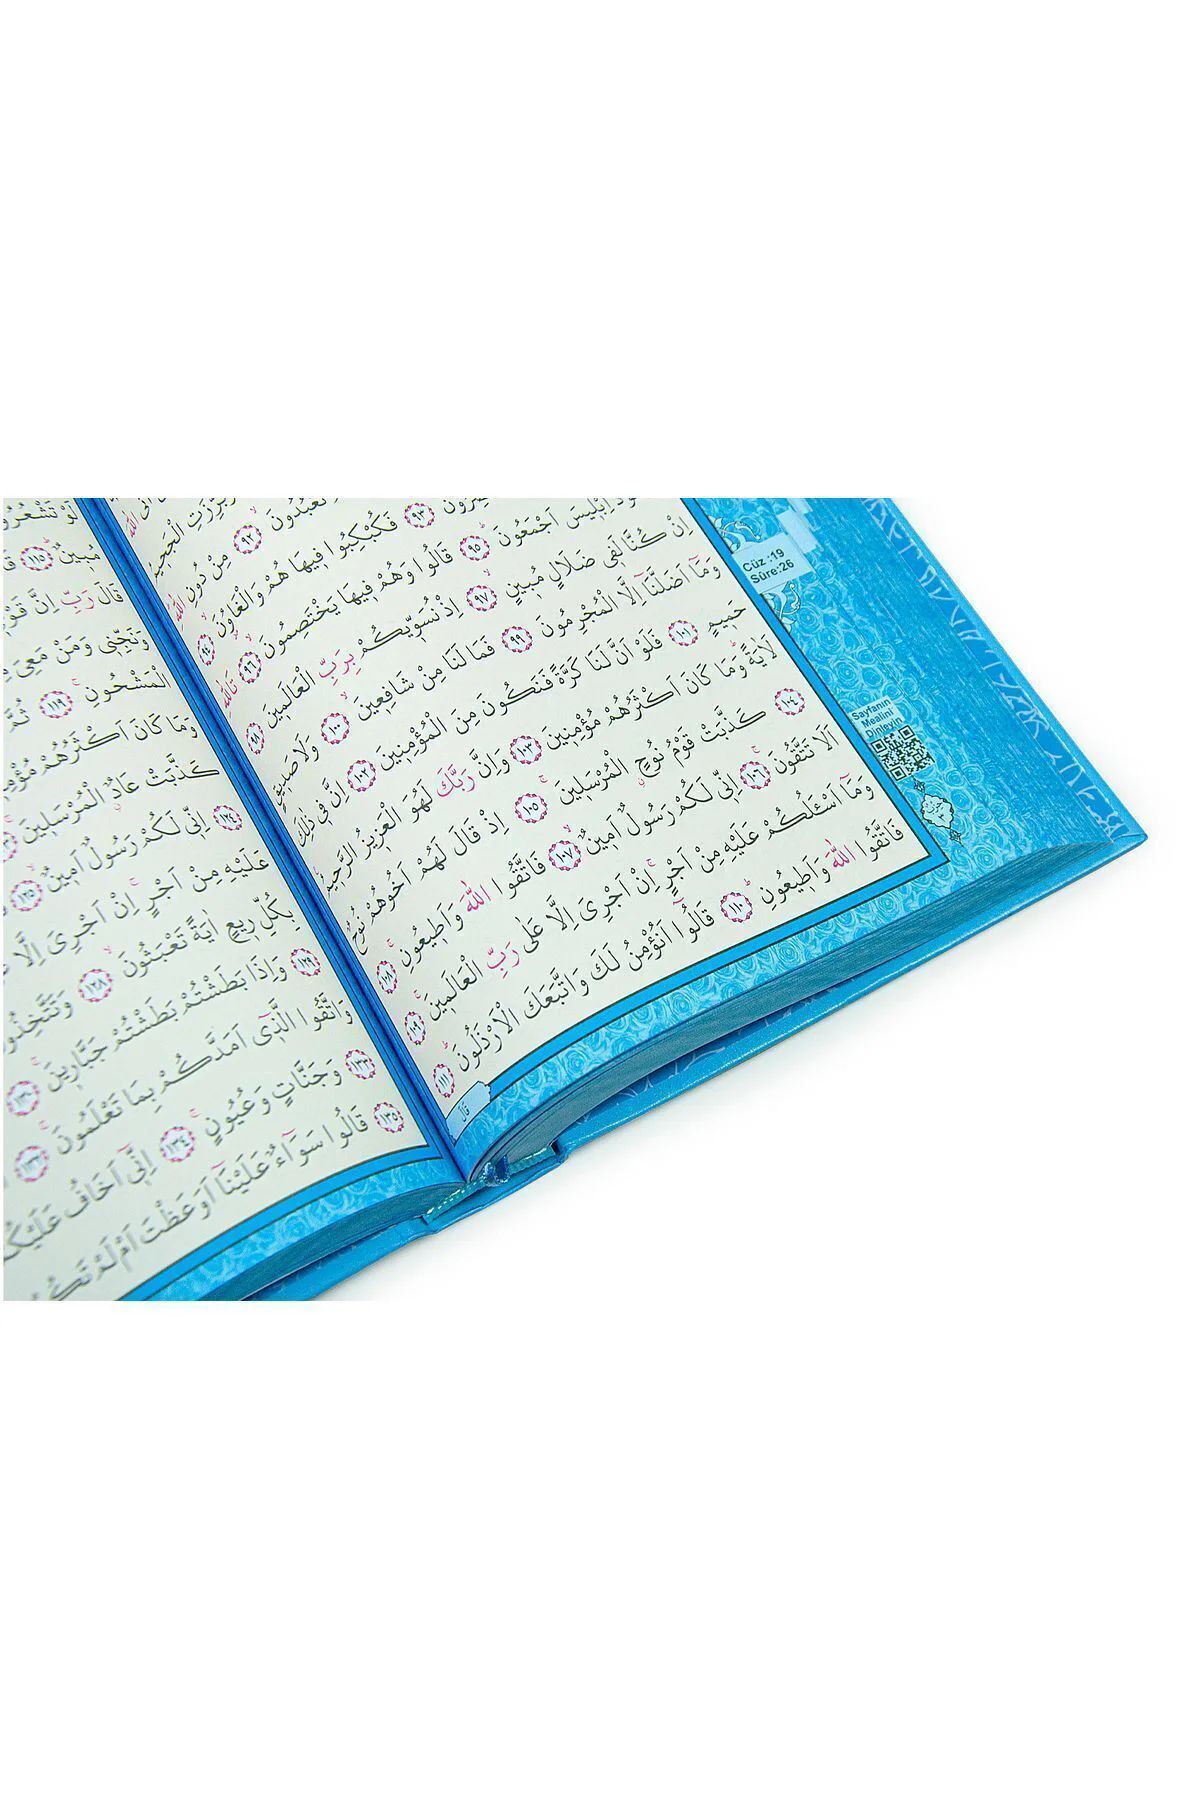 اللّٰهَ
وَبُرِّزَتِ الْجَحِيمُ
تَعْبُدُونَ ﴿٩٢﴾ مِنْ دُونِ اللّٰهِ
﴿٩٣﴾ فَكُبْكِبُوا فِيهَا هُمْ وَالْغَاوُ۫نَ ﴿٩٤﴾
اِبْلِيسَ اَجْمَعُونَ ﴿٩٥﴾ قَالُوا وَهُمْ فِيهَا يَخْتَصِمُونَ ﴿٩٦﴾ تَاللّٰهِ
اِنْ كُنَّا لَفِى ضَلَالٍ مُبِينٍ ﴿٩٧﴾ اِذْ نُسَوِّيكُمْ بِرَبِّ الْعَالَمِينَ ﴿٩٨﴾
وَمَٓا اَضَلَّنَٓا اِلَّا الْمُجْرِمُونَ ﴿٩٩﴾ فَمَا لَنَا مِنْ شَافِعِينَ ﴿١٠٠﴾ وَلَا صَدِيقٍ
حَمِيمٍ ﴿١٠١﴾ فَلَوْ اَنَّ لَنَا كَرَّةً فَنَكُونَ مِنَ الْمُؤْمِنِينَ ﴿١٠٢﴾ اِنَّ فِى ذٰلِكَ
لَاٰيَةً وَمَا كَانَ اَكْثَرُهُمْ مُؤْمِنِينَ ﴿١٠٣﴾ وَاِنَّ رَبَّكَ لَهُوَ الْعَزِيزُ الرَّحِيمُ
﴿١٠٤﴾ كَذَّبَتْ قَوْمُ نُوحٍ الْمُرْسَلِينَ ﴿١٠٥﴾ اِذْ قَالَ لَهُمْ اَخُوهُمْ نُوحٌ
اَلَا تَتَّقُونَ ﴿١٠٦﴾ اِنِّى لَكُمْ رَسُولٌ اَمِينٌ ﴿١٠٧﴾ فَاتَّقُوا اللّٰهَ وَاَطِيعُونِ ﴿١٠٨﴾
وَمَٓا اَسْـَٔلُكُمْ عَلَيْهِ مِنْ اَجْرٍ اِنْ اَجْرِىَ اِلَّا عَلٰى رَبِّ الْعَالَمِينَ ﴿١٠٩﴾
فَاتَّقُوا اللّٰهَ وَاَطِيعُونِ ﴿١١٠﴾ قَالُٓوا اَنُؤْمِنُ لَكَ وَاتَّبَعَكَ الْاَرْذَلُونَ ﴿١١١﴾
قَالَ
Cüz :19
Sûre:26
Sayfanın
Mealini
Dinleyin
لَوْ تَشْعُرُونَ
مُبِينٌ ﴿١١٥﴾
قَالَ رَبِّ اِنَّ
وَنَجِّنِى وَمَنْ مَعِىَ
الْمَشْحُونِ ﴿١١٩﴾ ثُمَّ
وَمَا كَانَ اَكْثَرُهُمْ
كَذَّبَتْ عَادٌ الْمُرْسَلِينَ
﴿١٢٤﴾ اِنِّى لَكُمْ رَسُولٌ اَمِينٌ ﴿١٢٥﴾
عَلَيْهِ مِنْ اَجْرٍ اِنْ اَجْرِىَ اِلَّا
بِكُلِّ رِيعٍ اٰيَةً تَعْبَثُونَ ﴿١٢٨﴾ وَتَتَّخِذُونَ
﴿١٢٩﴾ وَاِذَا بَطَشْتُمْ بَطَشْتُمْ جَبَّارِينَ ﴿١٣٠﴾
وَاتَّقُوا الَّذِٓى اَمَدَّكُمْ بِمَا تَعْلَمُونَ ﴿١٣٢﴾
﴿١٣٣﴾ وَجَنَّاتٍ وَعُيُونٍ ﴿١٣٤﴾ اِنِّٓى اَخَافُ عَلَيْكُمْ
﴿١٣٥﴾ قَالُوا سَوَٓاءٌ عَلَيْنَٓا اَوَعَظْتَ اَمْ لَمْ تَكُنْ